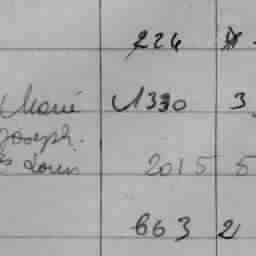 224
Marié 1330 3
Joseph.
Louis 2015 5
663 2